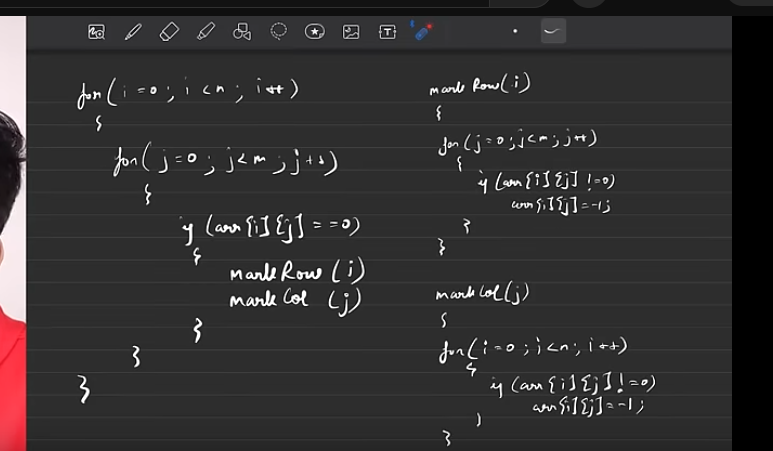 for(i=0; i<n; i++)
{
for(j=0; j<m; j++)
{
if (arr[i][j]==0)
{
markRow(i)
markCol(j)
}
}
}
markRow(i)
{
for(j=0;j<m;j++)
{
if (arr[i][j]!=0)
arr[i][j]=-1;
}
}
markCol(j)
{
for(i=0;i<n;i++)
{
if (arr[i][j]!=0)
arr[i][j]=-1;
}
}